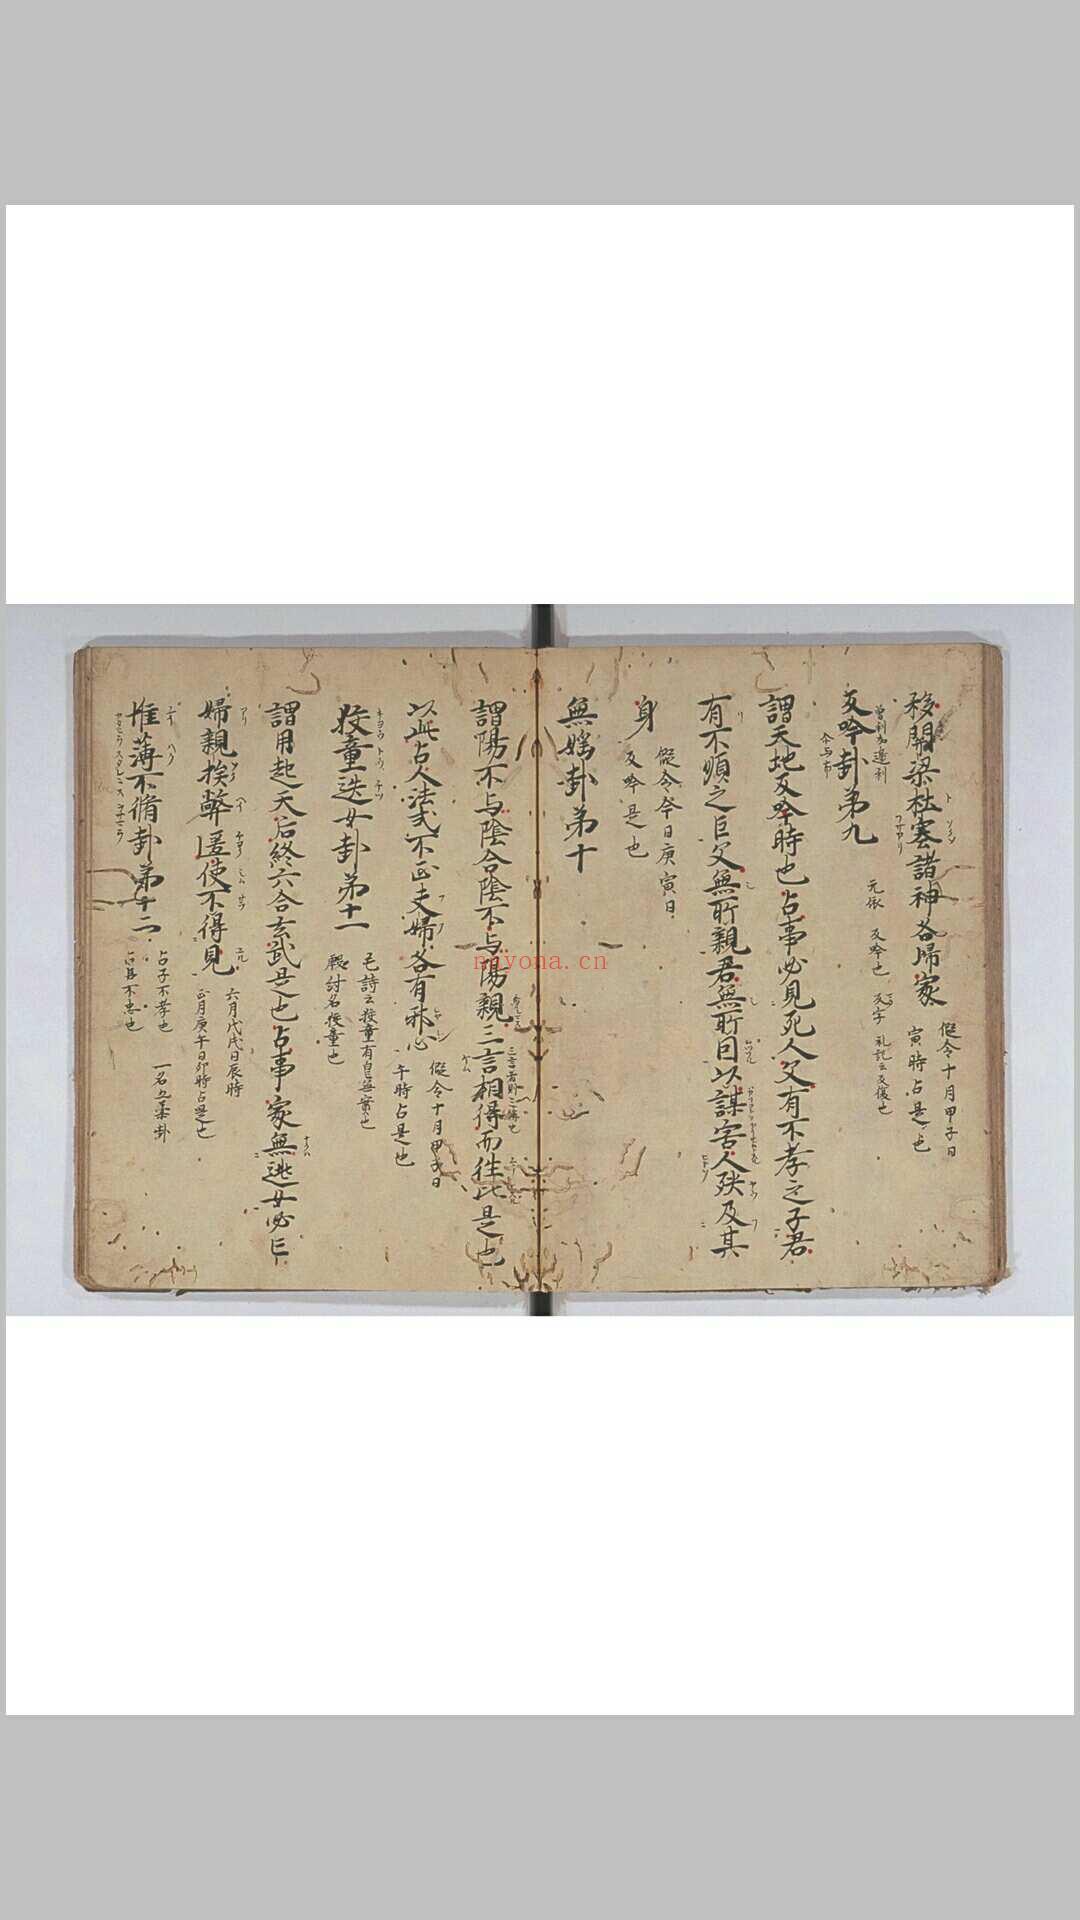 移開梁杜塞諸神各歸家
假令十月甲子日
寅時占是也
反吟卦第九
元依 反吟也 反字 礼記云反復也
謂天地反吟時也占事必見死人父有不孝之子君
有不順之臣父無所親君無所因以謀害人殃及其
身
假令今日庚寅日
反吟是也
無婬卦第十
謂陽不与陰合陰不与陽親三言相得而往比是也
以此占人法式不正夫婦各有邪心
假令十月甲戌日
午時占是也
狡童迭女卦第十一
毛詩云狡童有自無實也
殷紂名狡童也
謂用起天后終六合玄武是也占事家無逃女必亡
婦親挨弊匿使不得見
六月戊戌日辰時
正月庚午日卯時占是也
惟薄不脩卦第十二
占子不孝也 一名
占臣不忠也
nayona.cn